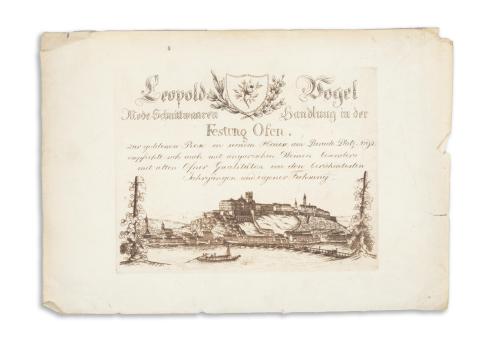 Leopold Vogel
Mode-Schnittwaaren Handlung in der
Festung Ofen.
zur goldenen Rose in seinem Hause am Parade Platz
empfiehlt sich auch mit ungarischen Weinen besonders
mit alten Ofner Qualitäten von den berühmtesten
Jahrgängen und eigener Fechsung